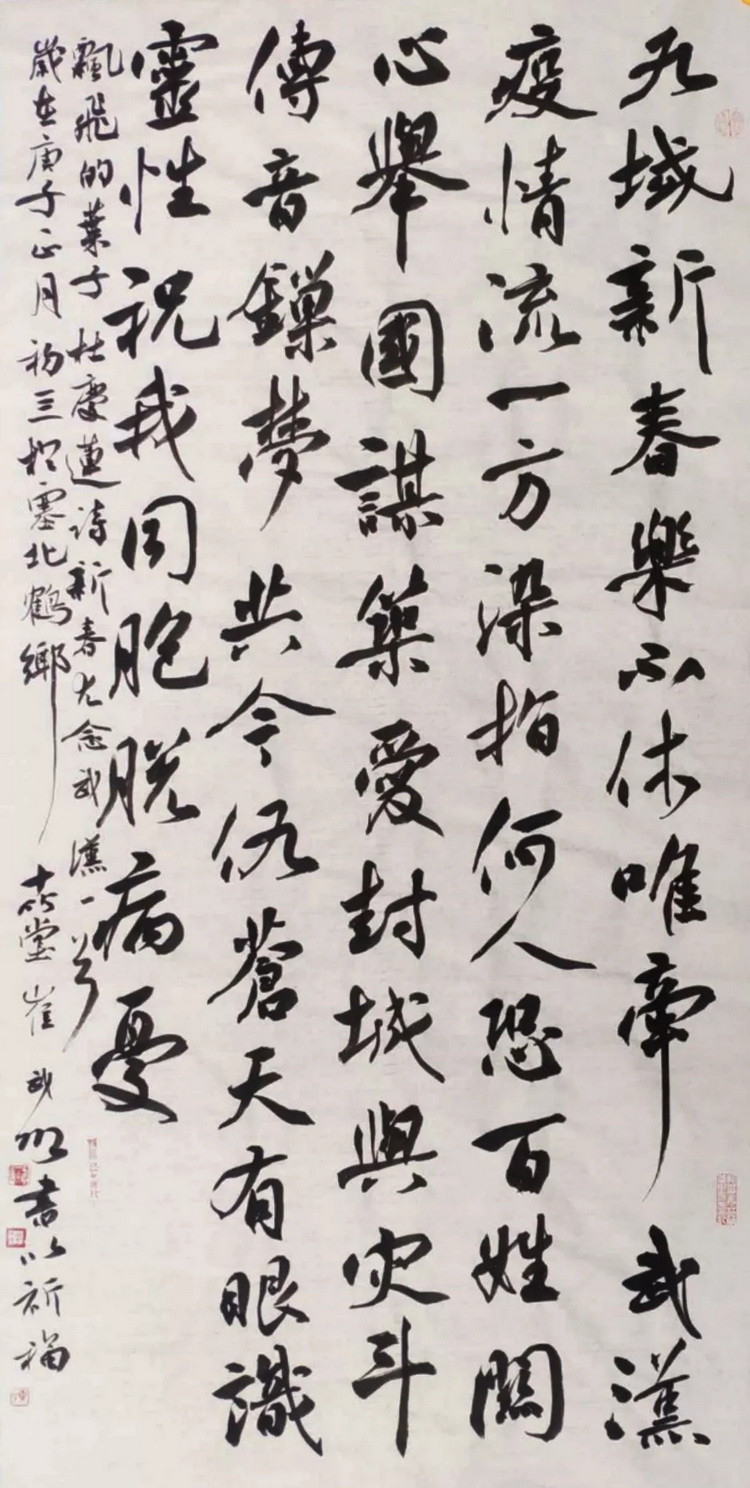 九域新春樂不休唯牽武漢
疫情流一方染指何人恐百姓關
心舉國謀築愛封城與灾斗
傳音鏁夢共今依蒼天有眼識
靈性祝我同胞脫病憂
飄飛的葉子杜慶蓮詩新春尤念武漢一首
歲在庚子正月初三於塞北鶴鄉 堂崔武書以祈福